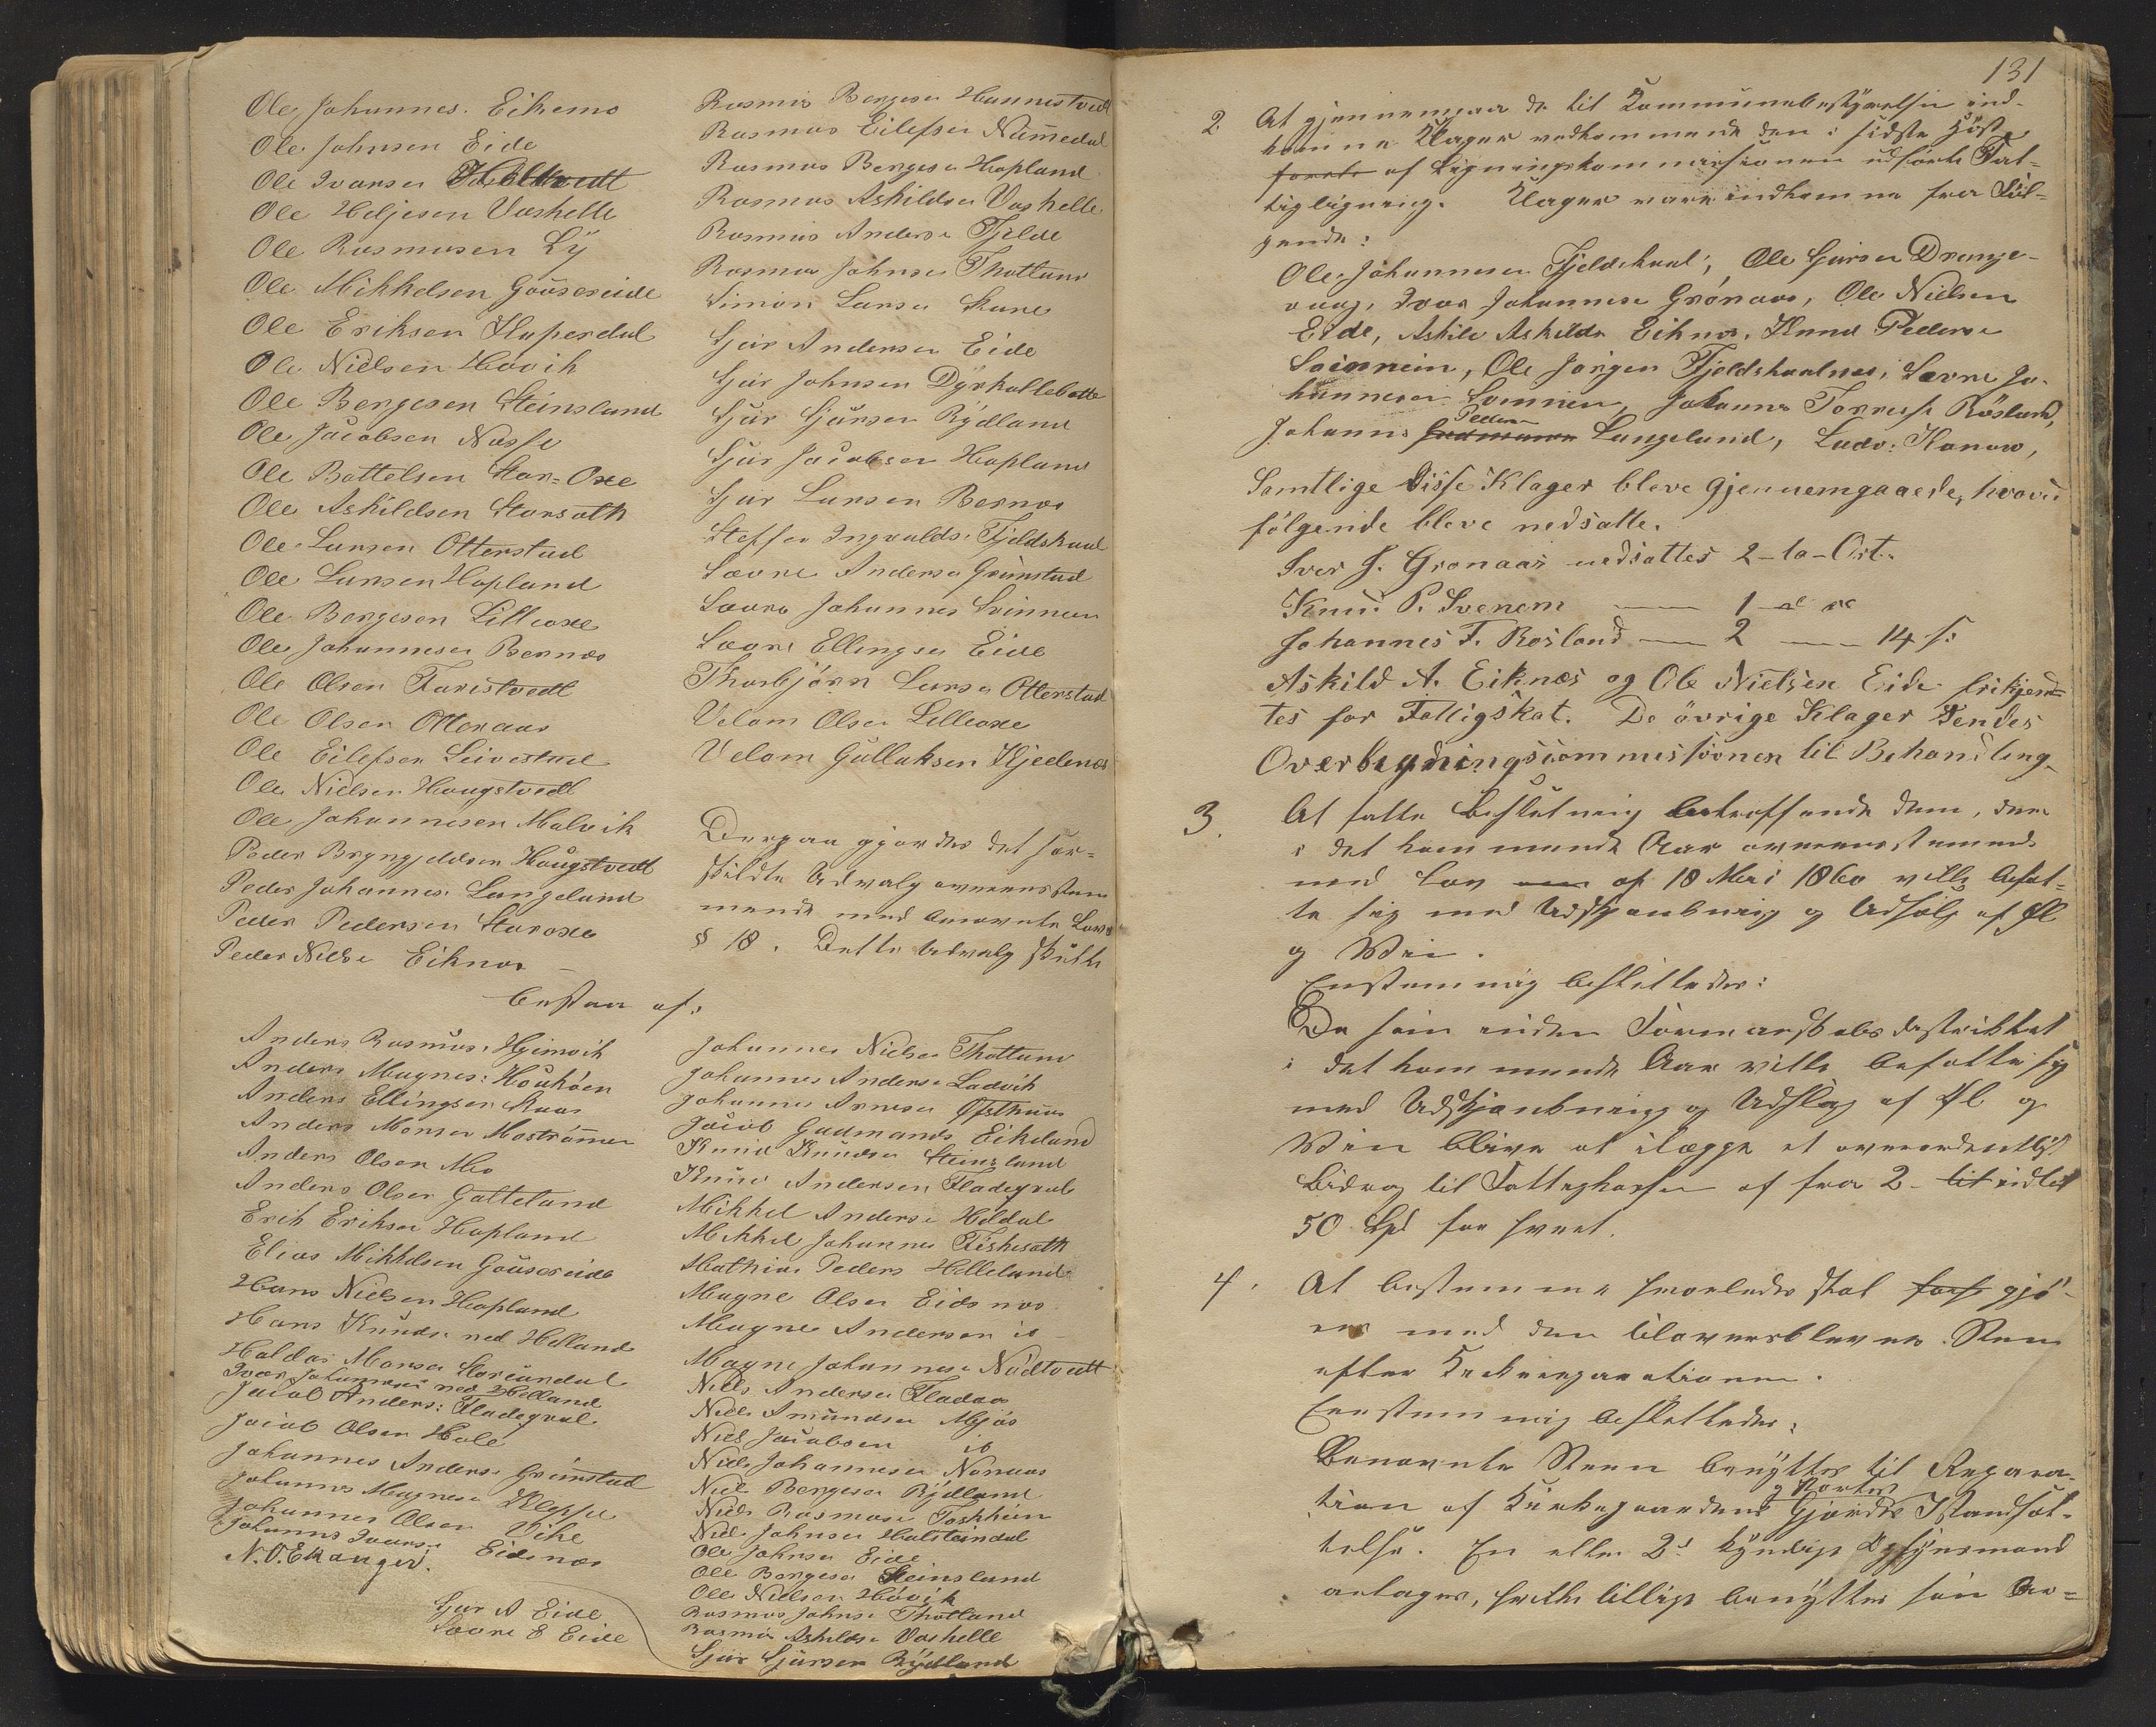 Ole Johannes. Eikemo
Ole Johnsen Eide
Ole Ivarsen Holtvedt
Ole Heljesen Vashelle
Ole Rasmusen Lÿ
Ole Mikkelsen Gousereide
Ole Eriksen Huperdal
Ole Nielsen Hovik
Ole Bergesen Steinsland
Ole Jacobsen Nasse
Ole Bottelsen Stor-Oxe
Ole Askildsen Storsæth
Ole Larsen Otterstad
Ole Larsen Hopland
Ole Bergesen Lilleoxe
Ole Johannesen Bernæs
Ole Olsen Taristvedt
Ole Olsen Otteraas
Ole Eilefsen Leivestad
Ole Nielsen Hougstvedt
Ole Johannesen Malvik
Peder Brÿngjeldsen Hougstvedt
Peder Johannes. Langeland
Peder Pedersen Storoxe
Peder Nielse Eiknes
Rasmus Bergesen Hannestvedt
Rasmus Eilefsen Nam̄edal
Rasmus Bergesen Hopland
Rasmus Askildsen Vashelle
Rasmus Anderse Tjelde
Rasmus Johnsen Thotland
Simon Larsen Skare
Sjur Andersen Eide
Sjur Johnsen Dÿrkollebotte
Sjur Sjursen Rÿdland
Sjur Jacobsen Hopland
Sjur Larsen Bernæs
Steffen Ingvalds. Fjeldskaal
Sævre Anderse Grimstad
Sævre Johannes Svinnem
Sævre Ellingse Eide
Thorbjörn Larse Otterstad
Velom Olsen Lilleoxe
Velom Gullaksen Kjeilenæs
Derpaa gjordes det for-
skildte Udvalg overensstem
mende med benævnte Lovs
§ 18. Dette Udvalg skulle
bestaa af:
Anders Rasmus. Hjeimvik
Anders Magnes: Houkóen
Anders Ellingsen Raa
Anders Monsen Mostrømmen
Anders Olsen Mo
Anders Olsen Gatteland
Erik Eriksen Hopland
Elias Mikkelsen Gousereide
Hans Nielsen Hopland
Hans Knuds. ned Helland
Haldor Monsen Storeindal
Ivar Johannesen ned Helland
Jacob Anders: Fladegval
Jacob Olsen Hole
Johannes Anderse Grimstad
Johannes Magnese Kleppe
Johannes Olsen Vike
Johannes Ivarse Eidsnæs
N. O. Ekanger.
Sjur A Eide
Sævre E Eide
Johannes Nielsen Thotland
Johannes Anderse Ladvik
Johannes Arnesen Østhuus
Jacob Gudmands Eikeland
Knud Knudsen Steinsland
Knud Andersen Fladegval
Mikkel Anderse Heldal
Mikkel Johannes Fiskesæth
Mathias Peders Helleland
Magne Olsen Eidsnæs
Magne Andersen id
Magne Johannese Nódtvedt
Niels Andersen Fladaas
Niels Amundsen Mjós
Niels Jacobsen id
Niels Johannesen Noraas
Niels Bergesen Rÿdland
Niels Rasmuse Toskhun
Niels Johnsen Halsteindal
Ole Johnsen Eide
Ole Bergesen Steinsland
Ole Nielsen Hóvik
Rasmus Johnse Thotland
Rasmus Askildse Vashelle
Sjur Sjursen Rÿdland
131
2 At gjennemgaa de til Kommunebestÿrelsen ind-
komne Klager vedkommende den i sidste Höst
af Ligningskommissionen udførte Fat-
tigligning. Klager vare indkomne fra Föl-
gende:
Ole Johannesen Fjeldskaal, Ole Sjursen Drange-
vaag, Ivar Johannese Grónaas, Ole Nielsen
Eide, Askild Askildse Eiknes, Knud Pederse
Svinnem, Ole Jörgen Fjeldskaalnes, Sævre Jo-
hannesen Svinnem, Johannes Tornese Röslund,
Peders
Johannes Langeland, Ludv: Konow,
Samtlige disse Klager bleve gjennemgaaede, hvorved
fölgende bleve nedsatte.
Iver J. Gronaas nedsattes 2-10-Ort.
Knud P. Svenem — 1 —
Johannes T. Rosland — 2 — 14 s:
Askild A. Eiknæs og Ole Nielsen Eide frikjend-
tes for Fattigskat. De övrige Klager sendes
Overligningscommissionen til Behandling.
3. At fatte Beslutning betreffende dem, der
i det kommende Aar overensstemmende
med Lov af 18 Mai 1860 ville befat-
te sig med Udskjænkning og Udsalg af Øl
og Vin.
Enstemmig besluttedes:
De som inden Formandskabsdistriktet
i det kommende Aar ville befatte sig
med Udskjænkning og Udsalg af Øl og
Vin blive at ilægge et overordentligt
Bidrag til Fattigkassen af fra 2 til indtil
50 Spd for hvert.
4. At bestemme hvorledes skal gjö-
res med den tiloversblevne Steen
efter Kirkereparationen.
Eenstemmig besluttedes:
Benævnte Steen benÿttes til Repara-
og Portes
tion af Kirkegaardens Gjærdes Istandsæt-
telse. En eller 2de kÿndige Opsÿnsmænd
antages, hvilke tillige benÿttes som Ar-